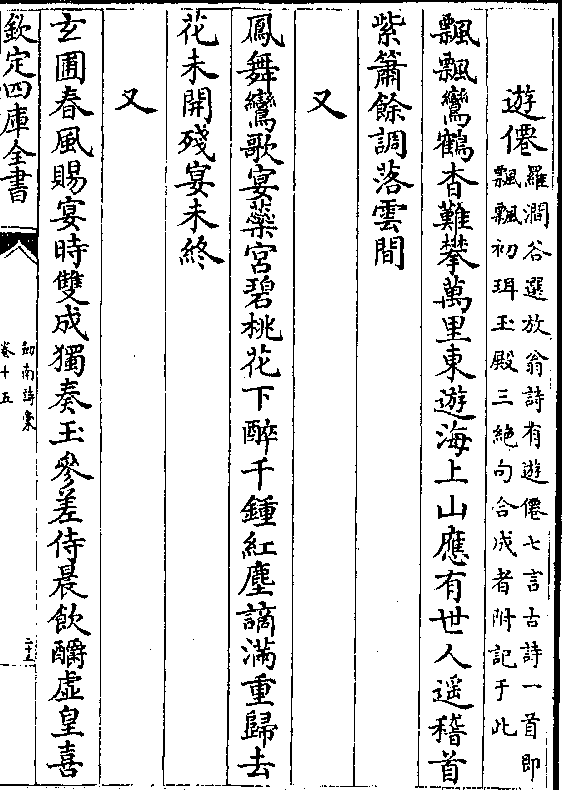 遊僊羅澗谷選放翁詩有遊僊七言古詩一首即
飄飄初珥玉殿三絶句合成者附記于此
飄飄鸞鶴杳難攀萬里東遊海上山應有世人遥稽首
紫簫餘調落雲間
又
鳳舞鸞歌宴蘂宮碧桃花下醉千鍾紅塵謫滿重歸去
花未開殘宴未終
又
玄圃春風賜宴時雙成獨奏玉參差侍晨飲釂虚皇喜
欽定四庫全書
劒南詩稾
卷十五
二十五